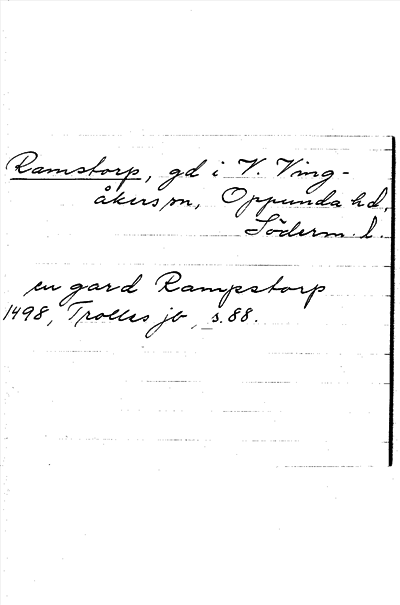 Ramstorp, gd i V. Ving-
åkers sn, Oppunda hd,
Söderm. l.
en gard Rampstorp
1498, Trolles jb, s. 88.